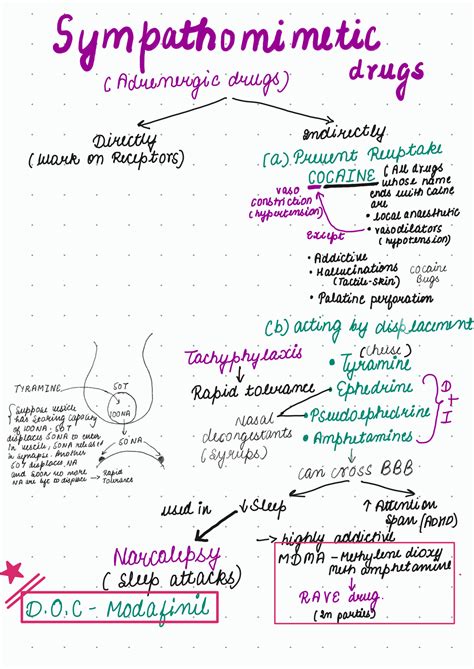 Sympathomimetic
drugs
(Adrenergic drugs)
Directly
(Work on Receptors)
Indirectly
(a) Prevent Reuptake
COCAINE
(All drugs
whose name
ends with caine
are
• local anaesthetic
• vasodilators
(hypotension)
vaso
constriction
(hypertension)
Except
• Addictive
• Hallucinations
(Tactile-skin)
cocaine
Bugs
• Palatine perforation
(b) acting by displacement
(cheese)
• Tyramine
• Ephedrine
• Pseudoephedrine
• Amphetamines
D
+
I
Tachyphylaxis
Rapid tolerance
Nasal
decongestants
(Syrups)
TYRAMINE
50T
100NA
50NA
Suppose vesicle
has storing capacity
of 100NA. 50T
displaces 50NA to enter
in vesicle, 50NA release
in synapse. Another
50T displaces NA
and soon no more
NA are left to displace → Rapid
Tolerance
can cross BBB
used in
↓ Sleep
↑ Attention
Span (ADHD)
→ highly addictive
Narcolepsy
(Sleep attacks)
D.O.C - Modafinil
MDMA - Methylene dioxy
Meth amphetamine
RAVE drug
(In parties)